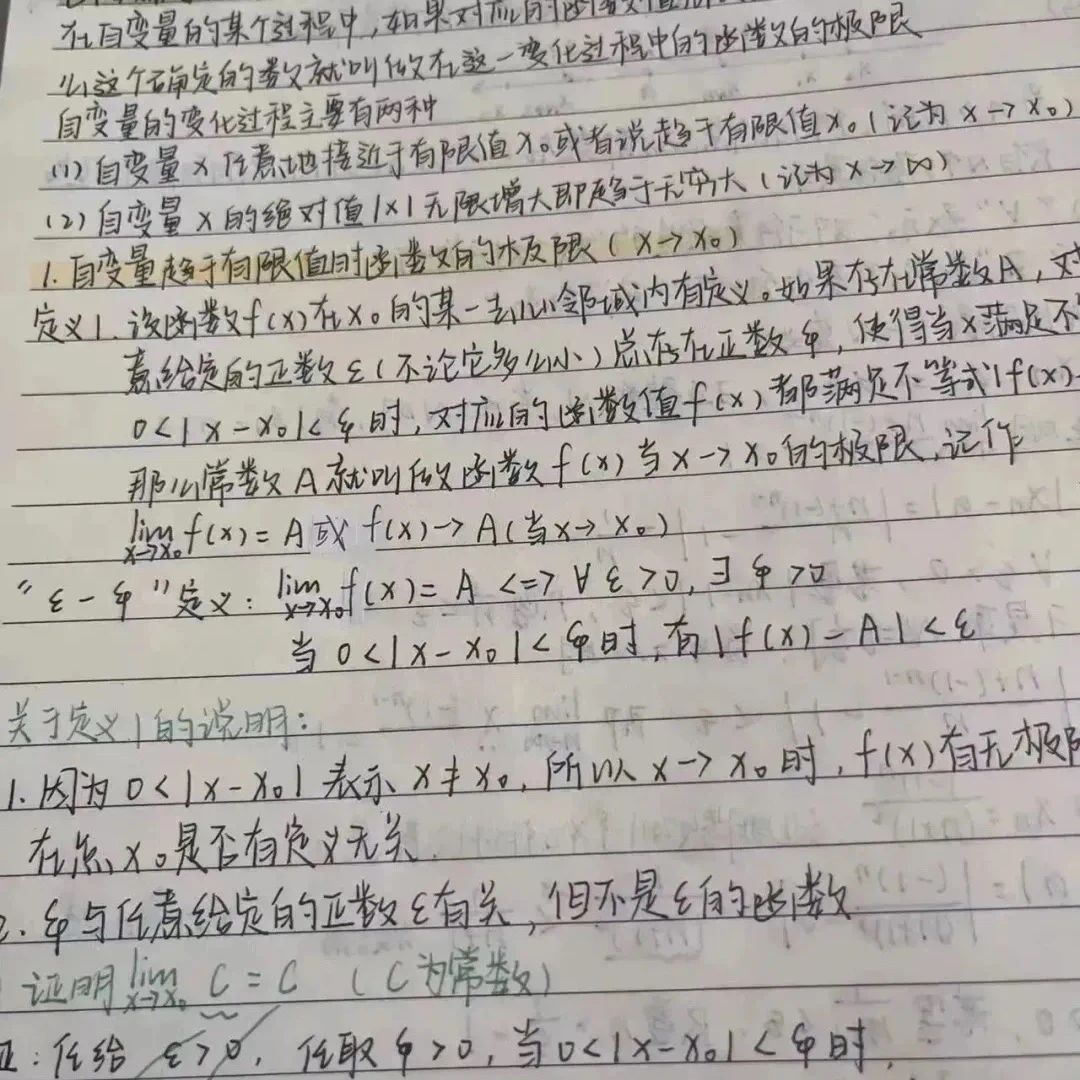 在自变量的某个过程中,如果对应的函数值
么这个确定的数就叫做在这一变化过程中的函数的极限
自变量的变化过程主要有两种
(1) 自变量 x 任意地接近于有限值 x₀ 或者说趋于有限值 x₀ (记为 x → x₀)
(2) 自变量 x 的绝对值 |x| 无限增大即趋于无穷大 (记为 x → ∞)
1. 自变量趋于有限值时函数的极限 (x → x₀)
定义1. 设函数 f(x) 在 x₀ 的某一去心邻域内有定义。如果存在常数 A, 对
意给定的正数 ε (不论它多么小) 总存在正数 φ, 使得当 x 满足不
0 < | x - x₀ | < φ 时, 对应的函数值 f(x) 都满足不等式 | f(x) -
那么常数 A 就叫做函数 f(x) 当 x → x₀ 的极限, 记作
lim x→x₀ f(x) = A 或 f(x) → A (当 x → x₀)
“ ε - φ ” 定义: lim x→x₀ f(x) = A <=> ∀ ε > 0, ∃ φ > 0
当 0 < | x - x₀ | < φ 时, 有 | f(x) - A | < ε
关于定义1的说明:
1. 因为 0 < | x - x₀ | 表示 x ≠ x₀, 所以 x → x₀ 时, f(x) 有无极限
在点 x₀ 是否有定义无关.
2. φ 与任意给定的正数 ε 有关, 但不是 ε 的函数
证明 lim x→x₀ C = C (C 为常数)
证: 任给 ε > 0, 任取 φ > 0, 当 0 < | x - x₀ | < φ 时,